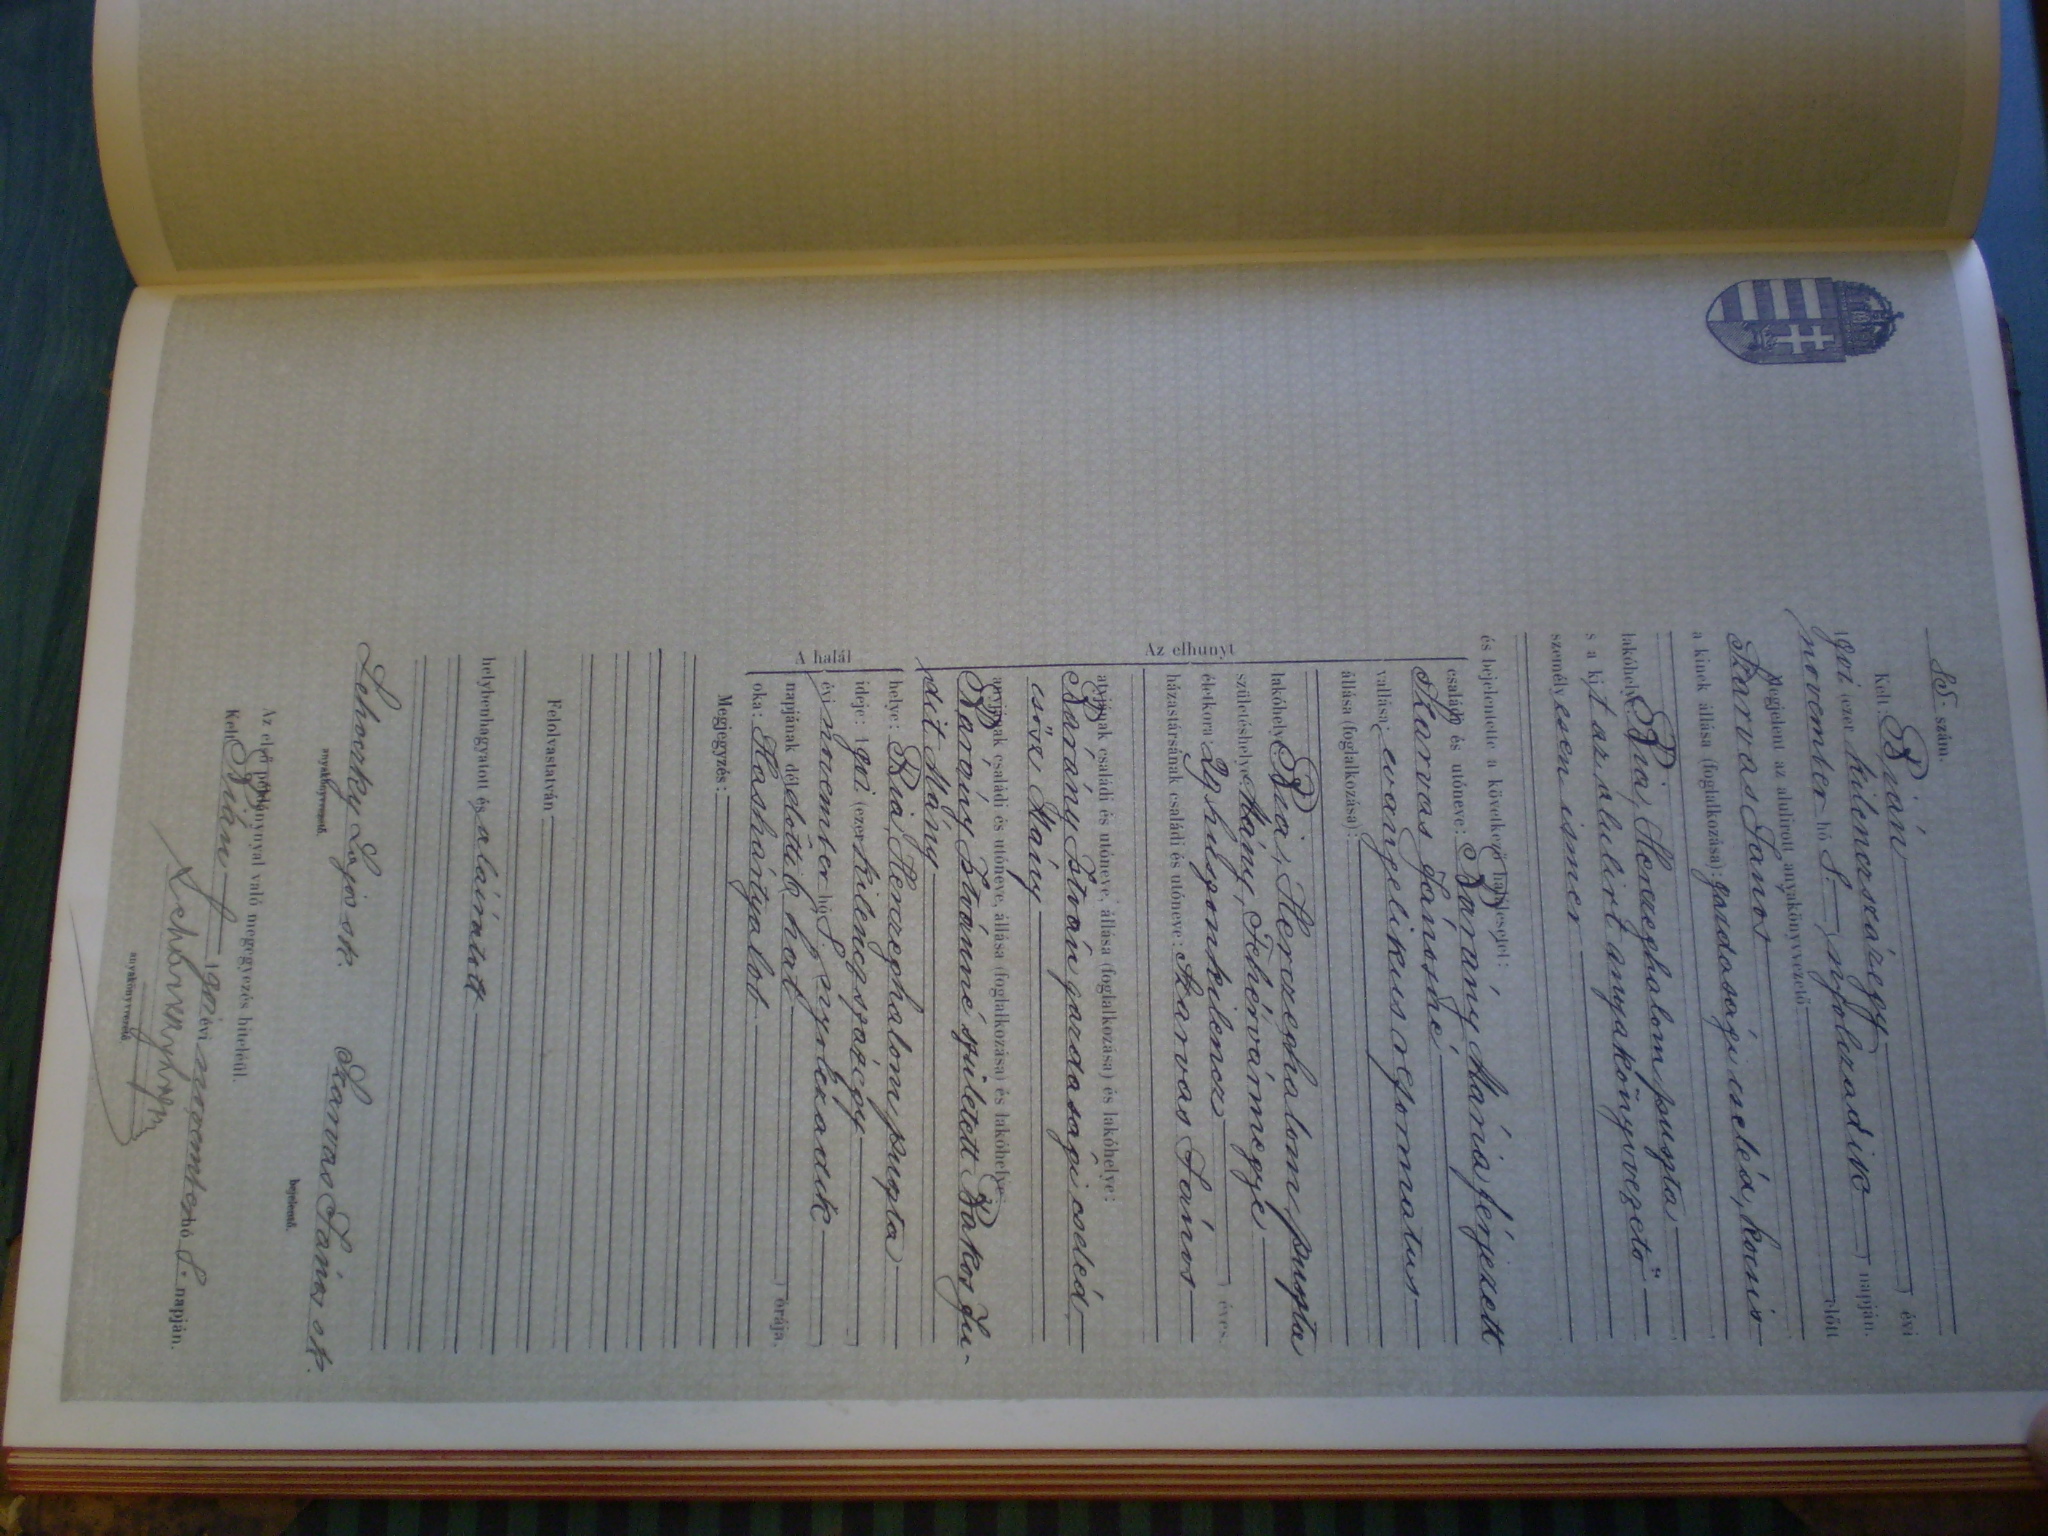 szám.
Kelt Bián évi
1901 (ezer kilencszázegy)
november hó 8. nyolczadik napján.
Megjelent az alulirott anyakönyvvezető előtt
Szarvas János
a kinek állása (foglalkozása): gazdasági cseléd, kocsis
lakóhelye Bia, Herczeghalom puszta
s a kit az alulirt anyakönyvvezető
személyesen ismer
és bejelentette a következő halálesetet:
Az elhunyt
családi és utóneve: Bárány Mária férjezett
Szarvas Jánosné
vallása: evangelikus reformatus
állása (foglalkozása):
lakóhelye Bia, Herczeghalom puszta
születéshelye Mány, Fehérvármegye
életkora 29 huszonkilencz éves.
házastársának családi és utóneve: Szarvas János
atyjának családi és utóneve, állása (foglalkozása) és lakóhelye:
Bárány István gazdasági cseléd,
Mány
anyjának családi és utóneve, állása (foglalkozása) és lakóhelye:
Bárány Istvánné született Bakos Ju-
dit Mány
A halál
helye: Bia, Herczeghalom puszta
ideje: 1901 (ezer kilenczszázegy)
évi november hó 8. nyolczadik
napjának délelőtti 6 hat órája.
oka: Hashártyalob
Megjegyzés:
Felolvastatván
helybenhagyatott és aláíratott
Lehoczky Lajos sk. Szarvas János sk.
anyakönyvvezető. bejelentő.
Az első példánynyal való megegyezés hiteléül.
Kelt Bián 1901 évi november hó 8. napján.
anyakönyvvezető